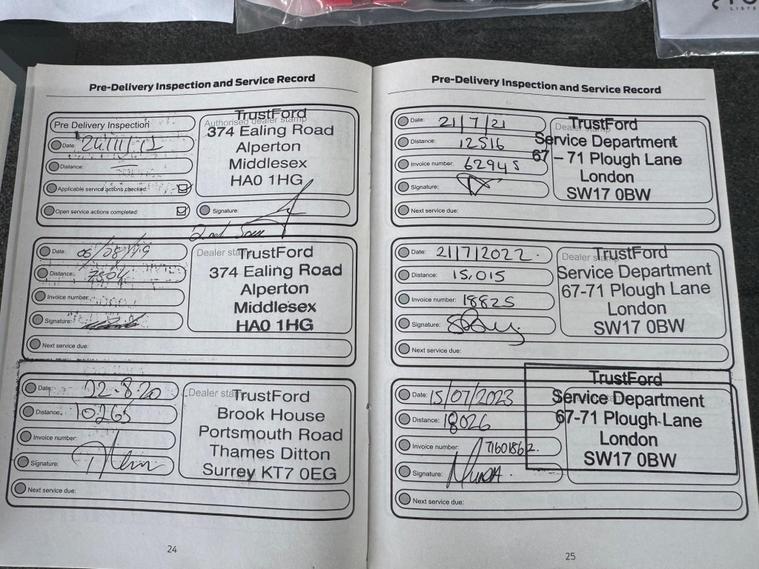 Pre-Delivery Inspection and Service Record
Pre Delivery Inspection
Date:
Distance:
Applicable service actions checked:
Open service actions completed:
Authorised dealer stamp
TrustFord
374 Ealing Road
Alperton
Middlesex
HA0 1HG
Signature:
2nd
Date: 06/08/19
Distance:
Invoice number:
Signature:
Next service due:
Dealer stamp
TrustFord
374 Ealing Road
Alperton
Middlesex
HA0 1HG
Date: 12.8.20
Distance: 10265
Invoice number:
Signature:
Next service due:
Dealer stamp
TrustFord
Brook House
Portsmouth Road
Thames Ditton
Surrey KT7 0EG
24
Pre-Delivery Inspection and Service Record
Date: 21/7/21
Distance: 12516
Invoice number: 62945
Signature:
Next service due:
Dealer stamp
TrustFord
Service Department
67 - 71 Plough Lane
London
SW17 0BW
Date: 21/7/2022.
Distance: 15,015
Invoice number: 18825
Signature:
Next service due:
Dealer stamp
TrustFord
Service Department
67-71 Plough Lane
London
SW17 0BW
Date: 15/07/2023
Distance: 18026
Invoice number: 71601862.
Signature:
Next service due:
TrustFord
Service Department
67-71 Plough Lane
London
SW17 0BW
25